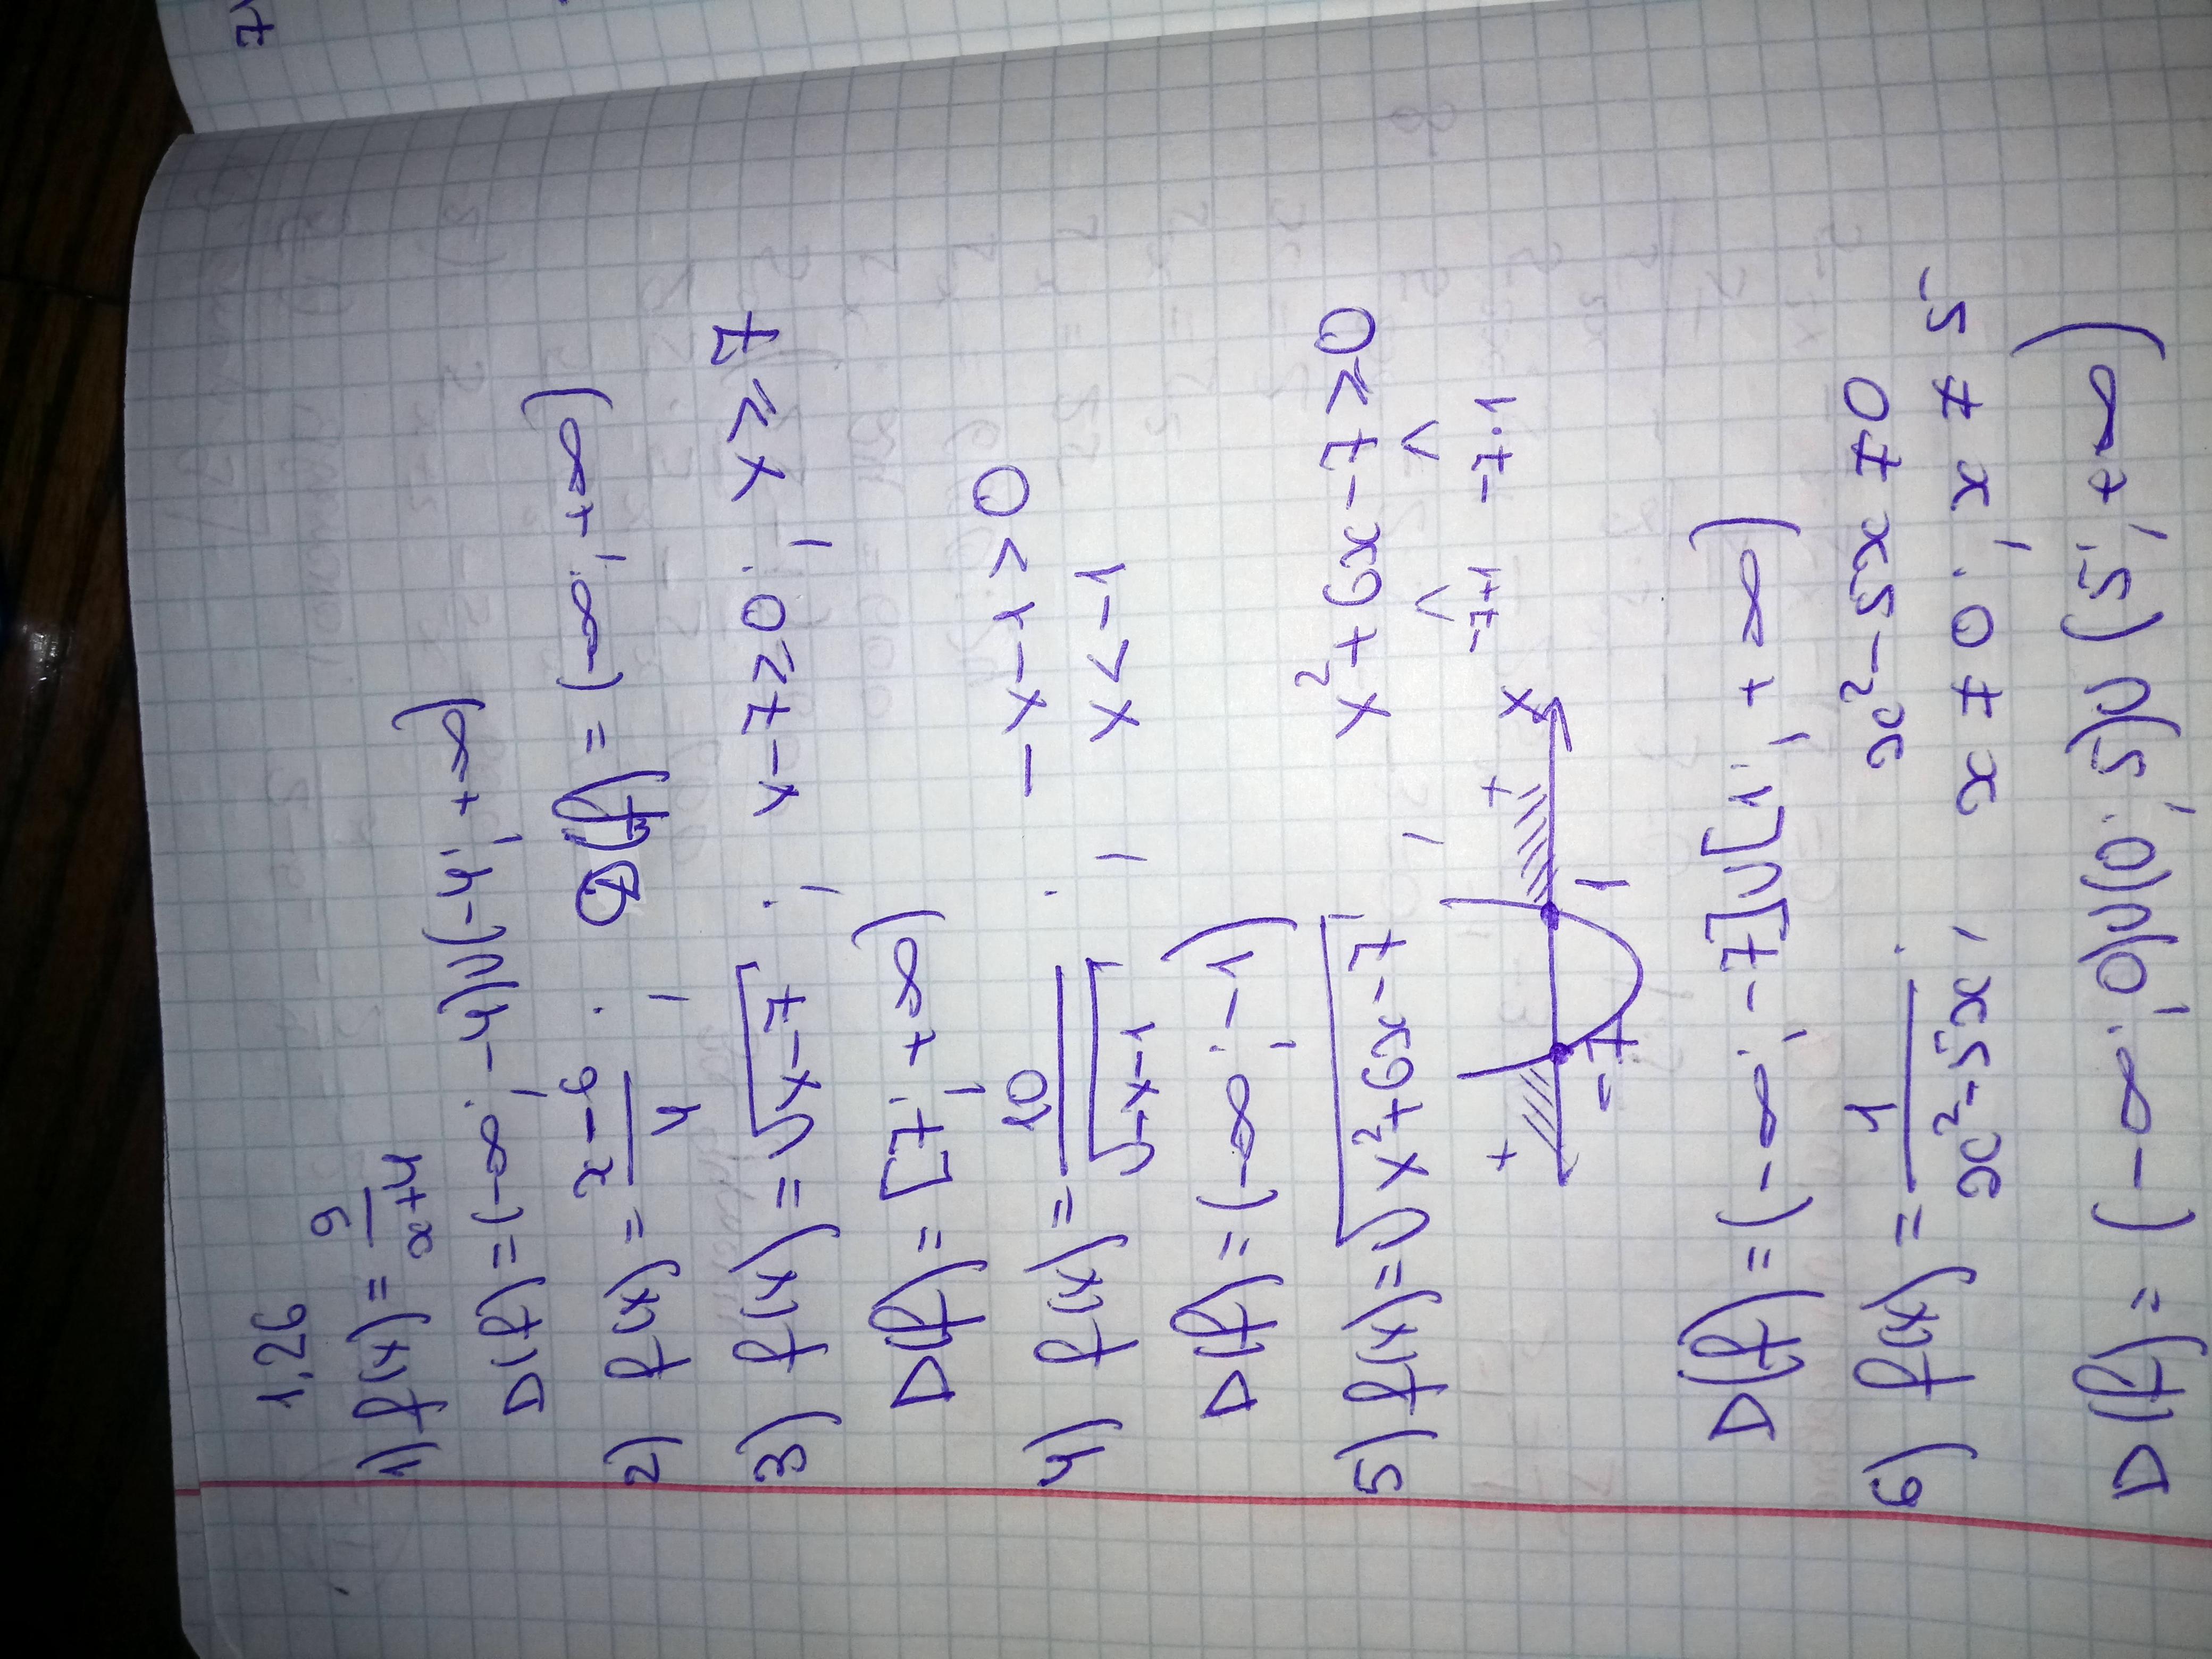 1.26
1) f(x) = 9/(x+4)
D(f) = (-∞; -4)∪(-4; +∞)
2) f(x) = (x-6)/4; D(f) = (-∞; +∞)
3) f(x) = √(x-7); x-7≥0; x≥7
D(f) = [7; +∞)
4) f(x) = 10/√(-x-1); -x-1>0
x<-1
D(f) = (-∞; -1)
5) f(x) = √(x²+6x-7); x²+6x-7≥0
-7+1 -7·1
+ + x
-7 1
D(f) = (-∞; -7]∪[1; +∞)
6) f(x) = 1/(x²-5x); x²-5x≠0
x≠0; x≠5
D(f) = (-∞; 0)∪(0; 5)∪(5; +∞)